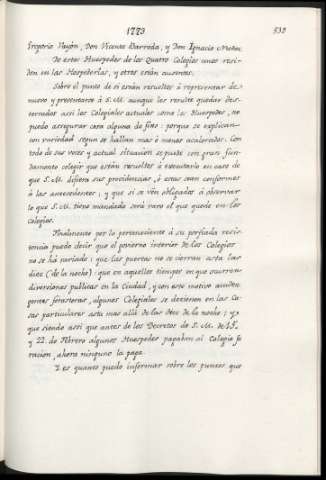 1773
538
Gregorio Hayón, Don Vicente Barreda, y Don Ignacio Muñoz
De estos Huespedes de los Quatro Colegios unos resi-
den en las Hospederías, y otros están ausentes.
Sobre el punto de si están resueltos á representar de-
nuevo y presentarse á S. M. aunque les resulte quedar des-
terrados assi los Colegiales actuales como los Huespedes, no
puedo assegurar cosa alguna de fixo: porque se explican-
con variedad segun se hallan mas ó menos acalorados. Con
todo de sus voces y actual situacion se puede con gran fun-
damento colegir que están resueltos á executarlo en caso de
que S. M. difiera sus providencias, ó estas sean conformes
á las antecedentes; y que si se vén obligados á observar
lo que S. M. tiene mandado será raro el que quede en los
Colegios.
Finalmente por lo perteneciente á su porfiada resis-
tencia puedo decir que el govierno interior de los Colegios
no se há variado: que las puertas no se cierran asta las
diez (de la noche): que en aquellos tiempos en que ocurren
diversiones publicas en la Ciudad, y con este motivo acuden
gentes forasteras, algunos Colegiales se detienen en las Ca-
sas particulares asta mas allá de las doce de la noche; y
que siendo assi que antes de los Decretos de S. M. de 15
y 22 de Febrero algunos Huespedes pagaban al Colegio su
racion, ahora ninguno la paga.
Y es quanto puedo informar sobre los puntos que